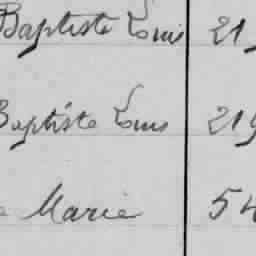 Baptiste Louis 21
Baptiste Louis 219
Marie 54